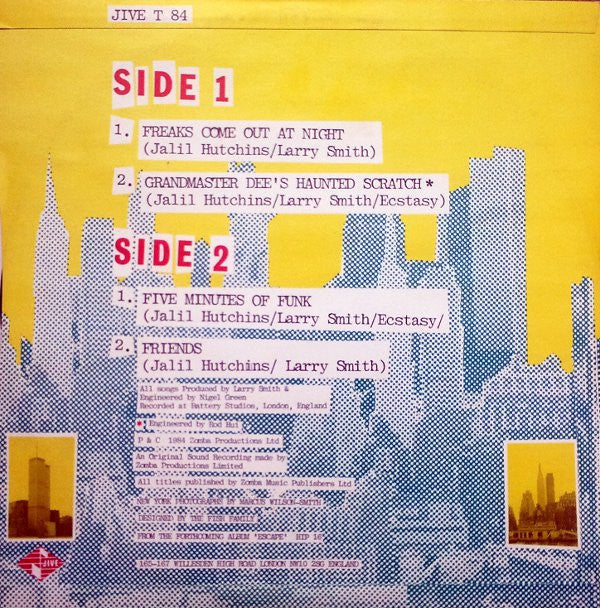 JIVE T 84
SIDE 1
1. FREAKS COME OUT AT NIGHT
(Jalil Hutchins/Larry Smith)
2. GRANDMASTER DEE'S HAUNTED SCRATCH *
(Jalil Hutchins/Larry Smith/Ecstasy)
SIDE 2
1. FIVE MINUTES OF FUNK
(Jalil Hutchins/Larry Smith/Ecstasy/
2. FRIENDS
(Jalil Hutchins/ Larry Smith)
All songs Produced by Larry Smith &
Engineered by Nigel Green
Recorded at Battery Studios, London, England
* Engineered by Rod Hui
P & C 1984 Zomba Productions Ltd
An Original Sound Recording made by
Zomba Productions Limited
All titles published by Zomba Music Publishers Ltd
NEW YORK PHOTOGRAPHS BY MARCUS WILSON-SMITH
DESIGNED BY THE FAMILY
FROM THE FORTHCOMING ALBUM 'ESCAPE' HIP 16
165-167 WILLESDEN HIGH ROAD LONDON NW10 2SG ENGLAND
JIVE